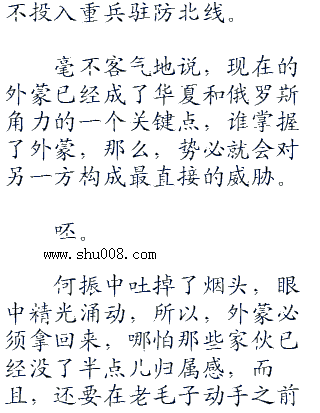 不投入重兵驻防北线。
毫不客气地说，现在的
外蒙已经成了华夏和俄罗斯
角力的一个关键点，谁掌握
了外蒙，那么，势必就会对
另一方构成最直接的威胁。
呸。
www.shu008.com
何振中吐掉了烟头，眼
中精光涌动，所以，外蒙必
须拿回来，哪怕那些家伙已
经没了半点儿归属感，而
且，还要在老毛子动手之前